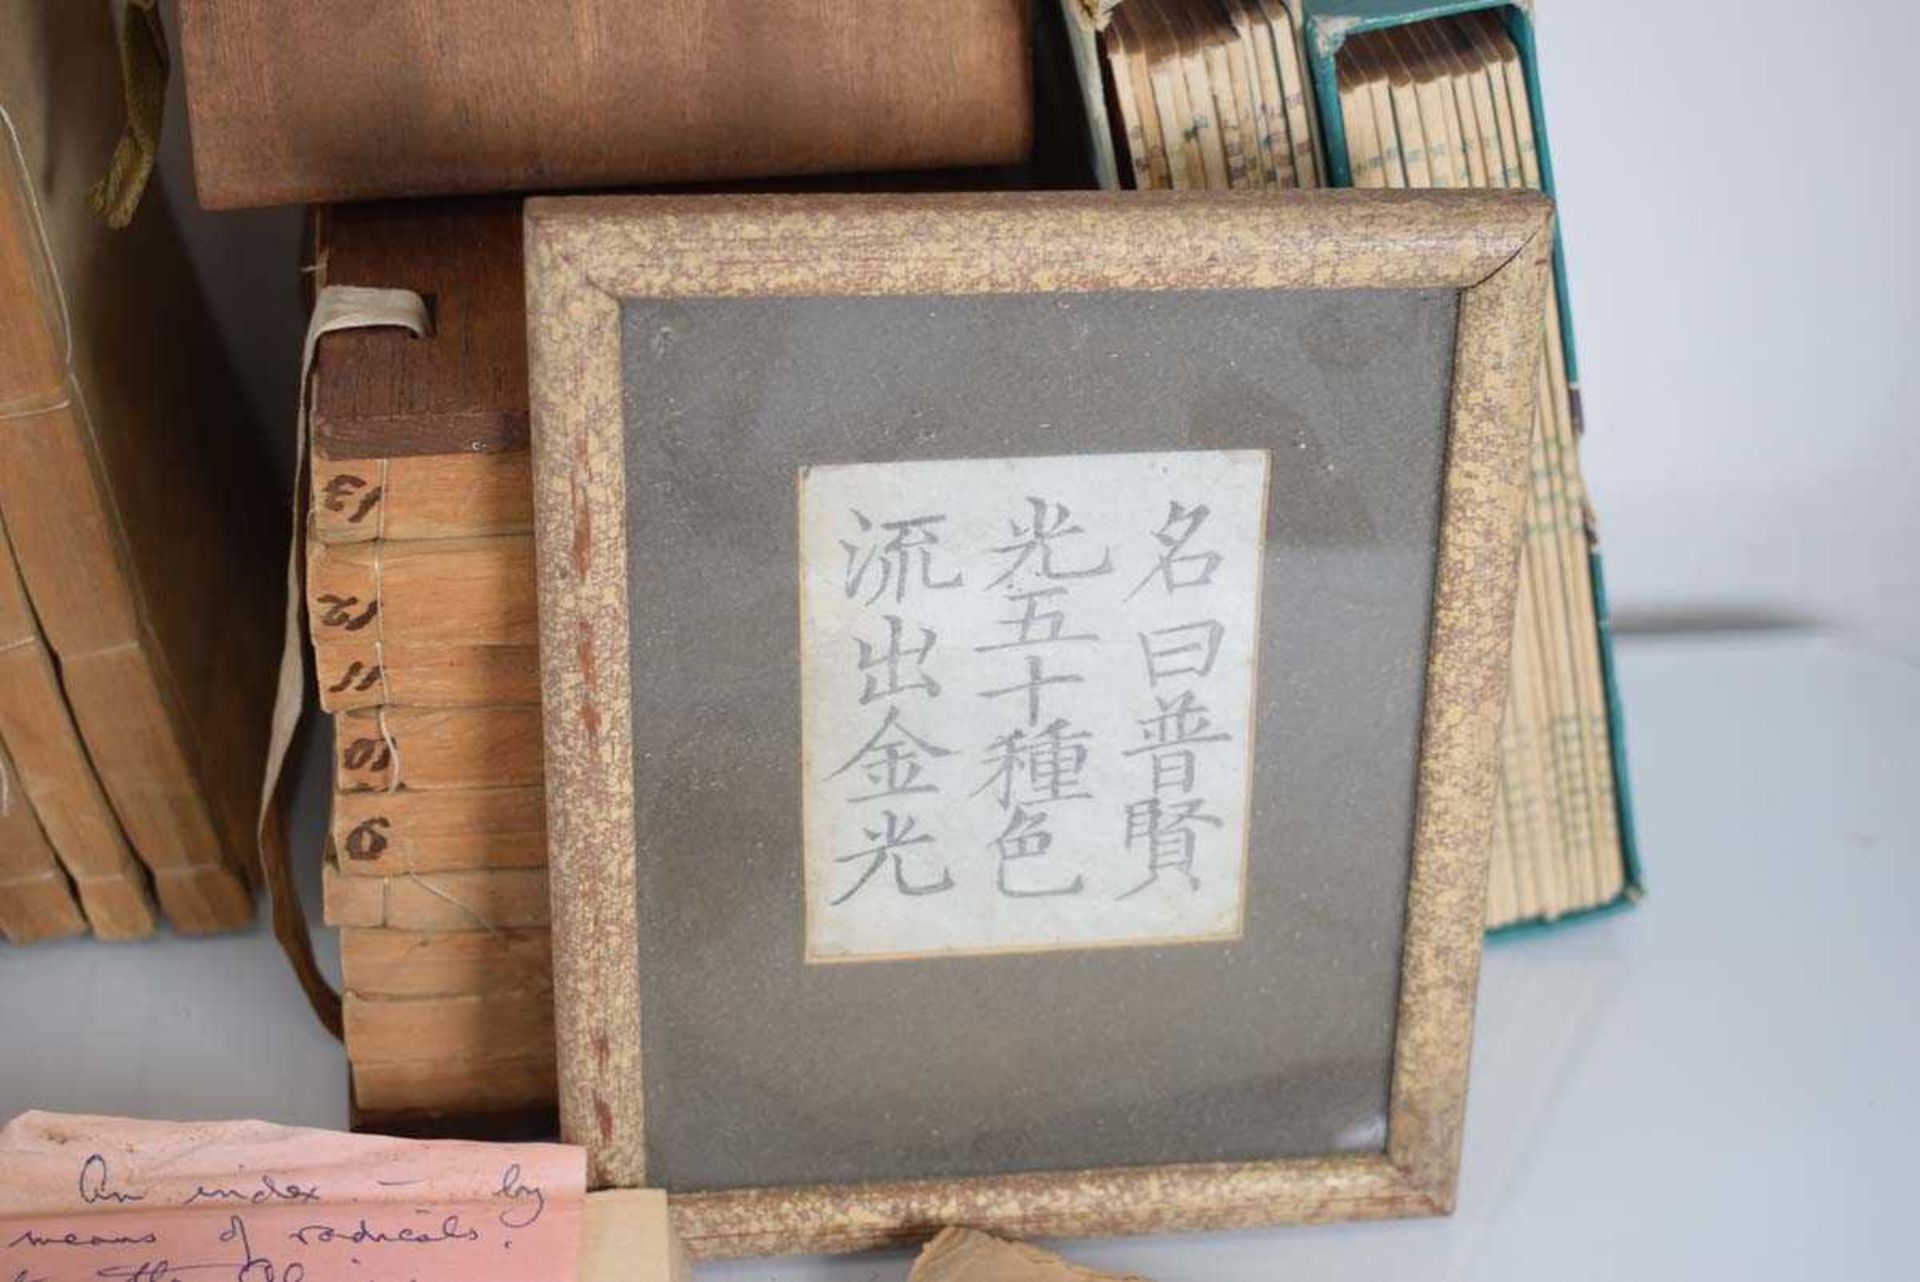 名曰普賢
光五十種色
流出金光
13
12
11
10
9
An index - by
means of radicals.